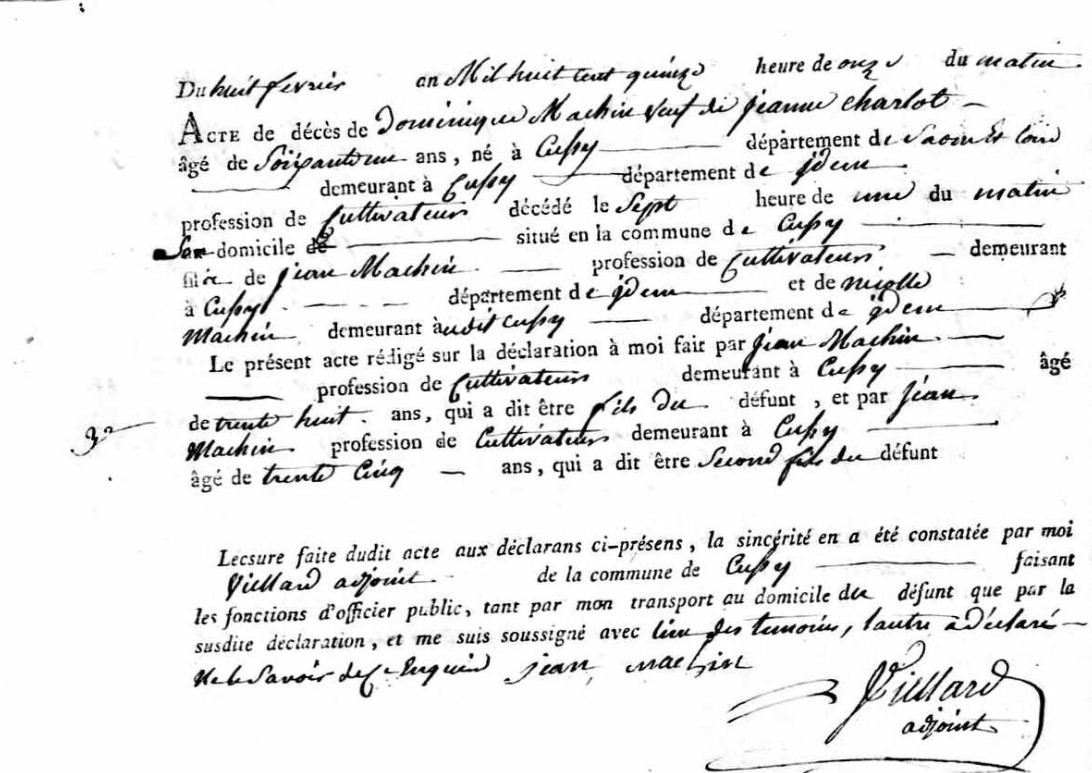 Du huit fevrier an Mil huit cent quinze heure de onze du matin
ACTE de décès de Dominique Machin veuf de jeanne charlot
âgé de Soixante ans, né à Cussy département de Saone Et Loire
demeurant à Cussy département de jdem
profession de Cultivateur décédé le Sept heure de une du matin
Son domicile de situé en la commune de Cussy
fils de jean Machin profession de Cultivateur demeurant
à Cussy département de jdem et de nicolle
Machin demeurant audit Cussy département de jdem
Le présent acte rédigé sur la déclaration à moi fait par jean Machin
profession de Cultivateur demeurant à Cussy âgé
de trente huit ans, qui a dit être fils du défunt, et par jean
Machin profession de Cultivateur demeurant à Cussy
âgé de trente Cinq ans, qui a dit être Second fils du défunt
Lecsure faite dudit acte aux déclarans ci-présens, la sincérité en a été constatée par moi
Villard adjoint de la commune de Cussy faisant
les fonctions d'officier public, tant par mon transport au domicile du défunt que par la
susdite déclaration, et me suis soussigné avec lun des temoins, lautre a déclaré
Ne le Savoir de Ce Enquis jean machin
Villard
adjoint